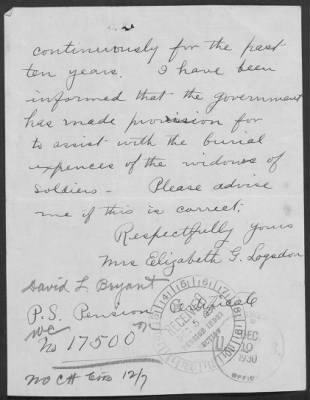 continuously for the past
ten years. I have been
informed that the government
has made provision for
to assist with the burial
expences of the widows of
soldiers - Please advise
me if this is correct.
Respectfully yours
Mrs Elizabeth G. Logsdon
David L Bryant
P.S. Pension Certificate
WC
No 17500
DEC
10
1930
NO CH 12/7